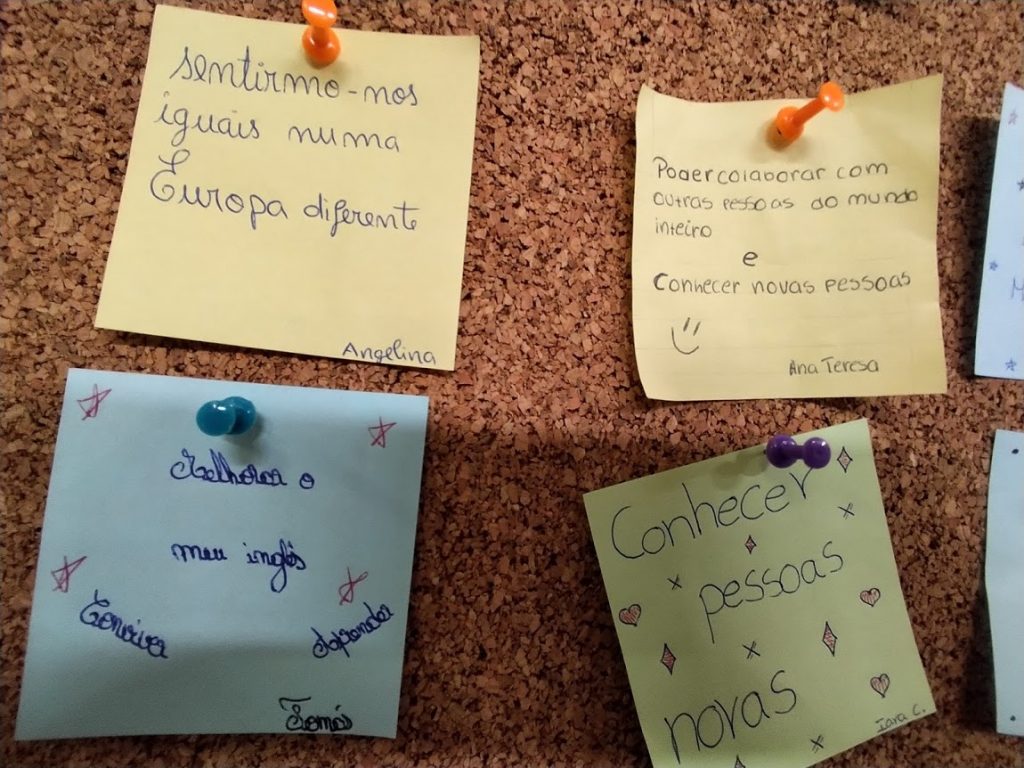 sentirmo-nos
iguais numa
Europa diferente
Angelina
Poder colaborar com
outras pessoas do mundo
inteiro
e
Conhecer novas pessoas
Ana Teresa
Melhorar o
meu inglês
Conviver
Aprender
Tomás
Conhecer
pessoas
novas
Iara C.
M